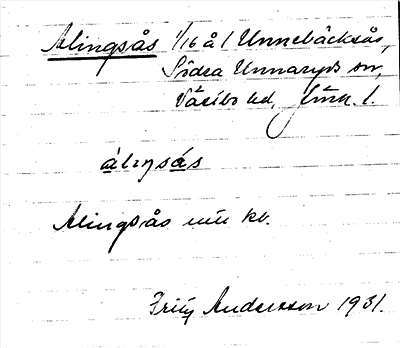 Alingsås 1/16 å 1 Unnebäcksås,
Södra Unnaryds sn,
Västbo hd, Jönk. l.
álıŋsás
Alingsås
Fritz Andersson 1931.